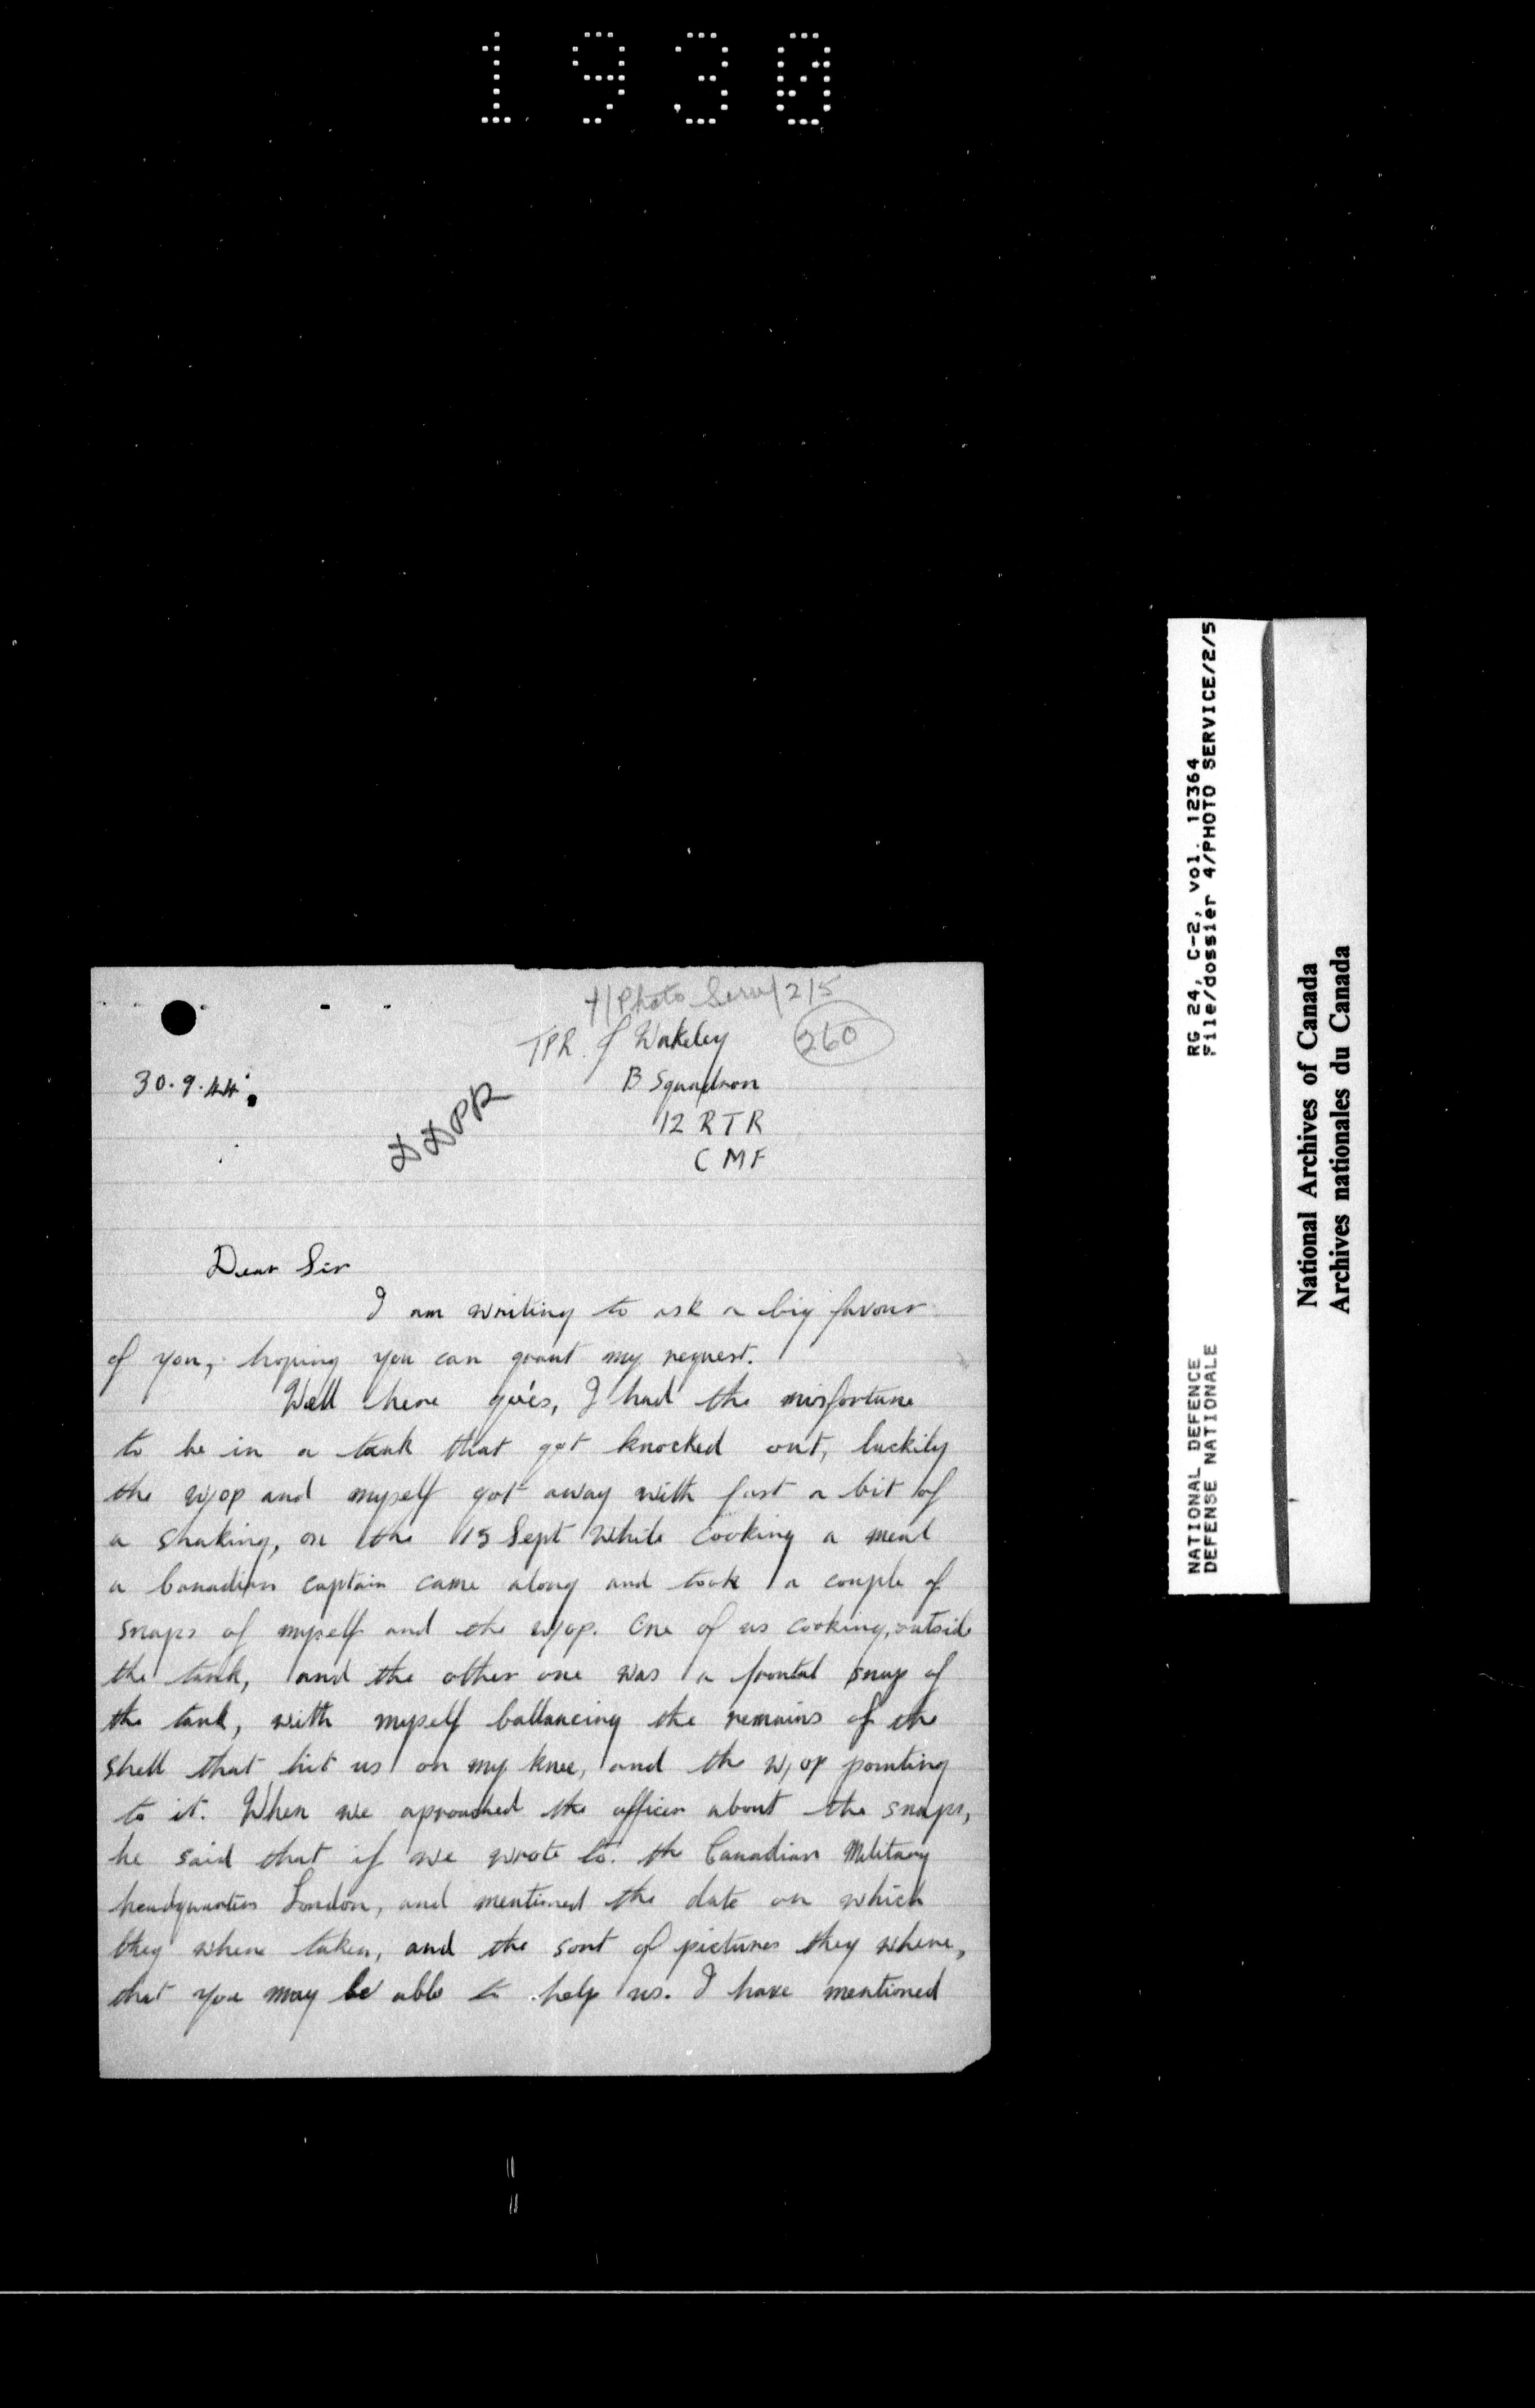 1930
4/Photo Serv/2/5
TPR. J Wakeley
260
30.9.44.
B Squadron
DDPR
12 RTR
CMF
Dear Sir
I am writing to ask a big favour
of you, hoping you can grant my request.
Well here goes, I had the misfortune
to be in a tank that got knocked out, luckily
the w/op and myself got away with just a bit of
a shaking, on the 15 Sept while cooking a meal
a Canadian captain came along and took a couple of
snaps of myself and the w/op. One of us cooking, outside
the tank, and the other one was a frontal snap of
the tank, with myself ballancing the remains of the
shell that hit us on my knee, and the w/op pointing
to it. When we aproached the officer about the snaps,
he said that if we wrote to the Canadian Military
headquarters London, and mentioned the date on which
they where taken, and the sort of pictures they where,
that you may be able to help us. I have mentioned
NATIONAL DEFENCE
DEFENSE NATIONALE
RG 24, C-2, vol. 12364
File/dossier 4/PHOTO SERVICE/2/5
National Archives of Canada
Archives nationales du Canada